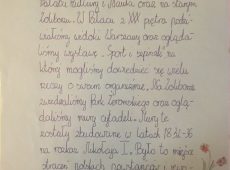 Pałacu Kultury i Nauki oraz na starym
Żoliborzu. W Pałacu z XXX piętra podzi-
waliśmy widoki Warszawy oraz ogląda-
liśmy wystawę "Sport i
którą mogliśmy dowiedzieć się wielu
rzeczy o swoim organizmie. Na Żoliborzu
zwiedzaliśmy Park Żeromskiego oraz oglą-
daliśmy mury cytadeli. Mury te
zostały zbudowane w latach 1832-36
na rozkaz Mikołaja I. Było to miejsce
straceń polskich powstańców i